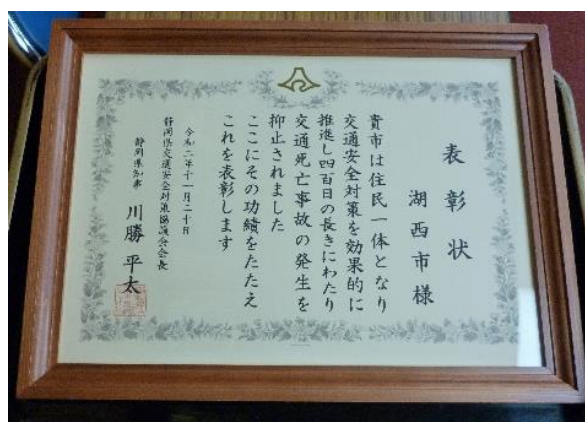 表彰状
湖西市様
貴市は住民一体となり
交通安全対策を効果的に
推進し四百日の長きにわたり
交通死亡事故の発生を
抑止されました
ここにその功績をたたえ
これを表彰します
令和二年十一月二十日
静岡県交通安全対策協議会会長
静岡県知事 川勝平太